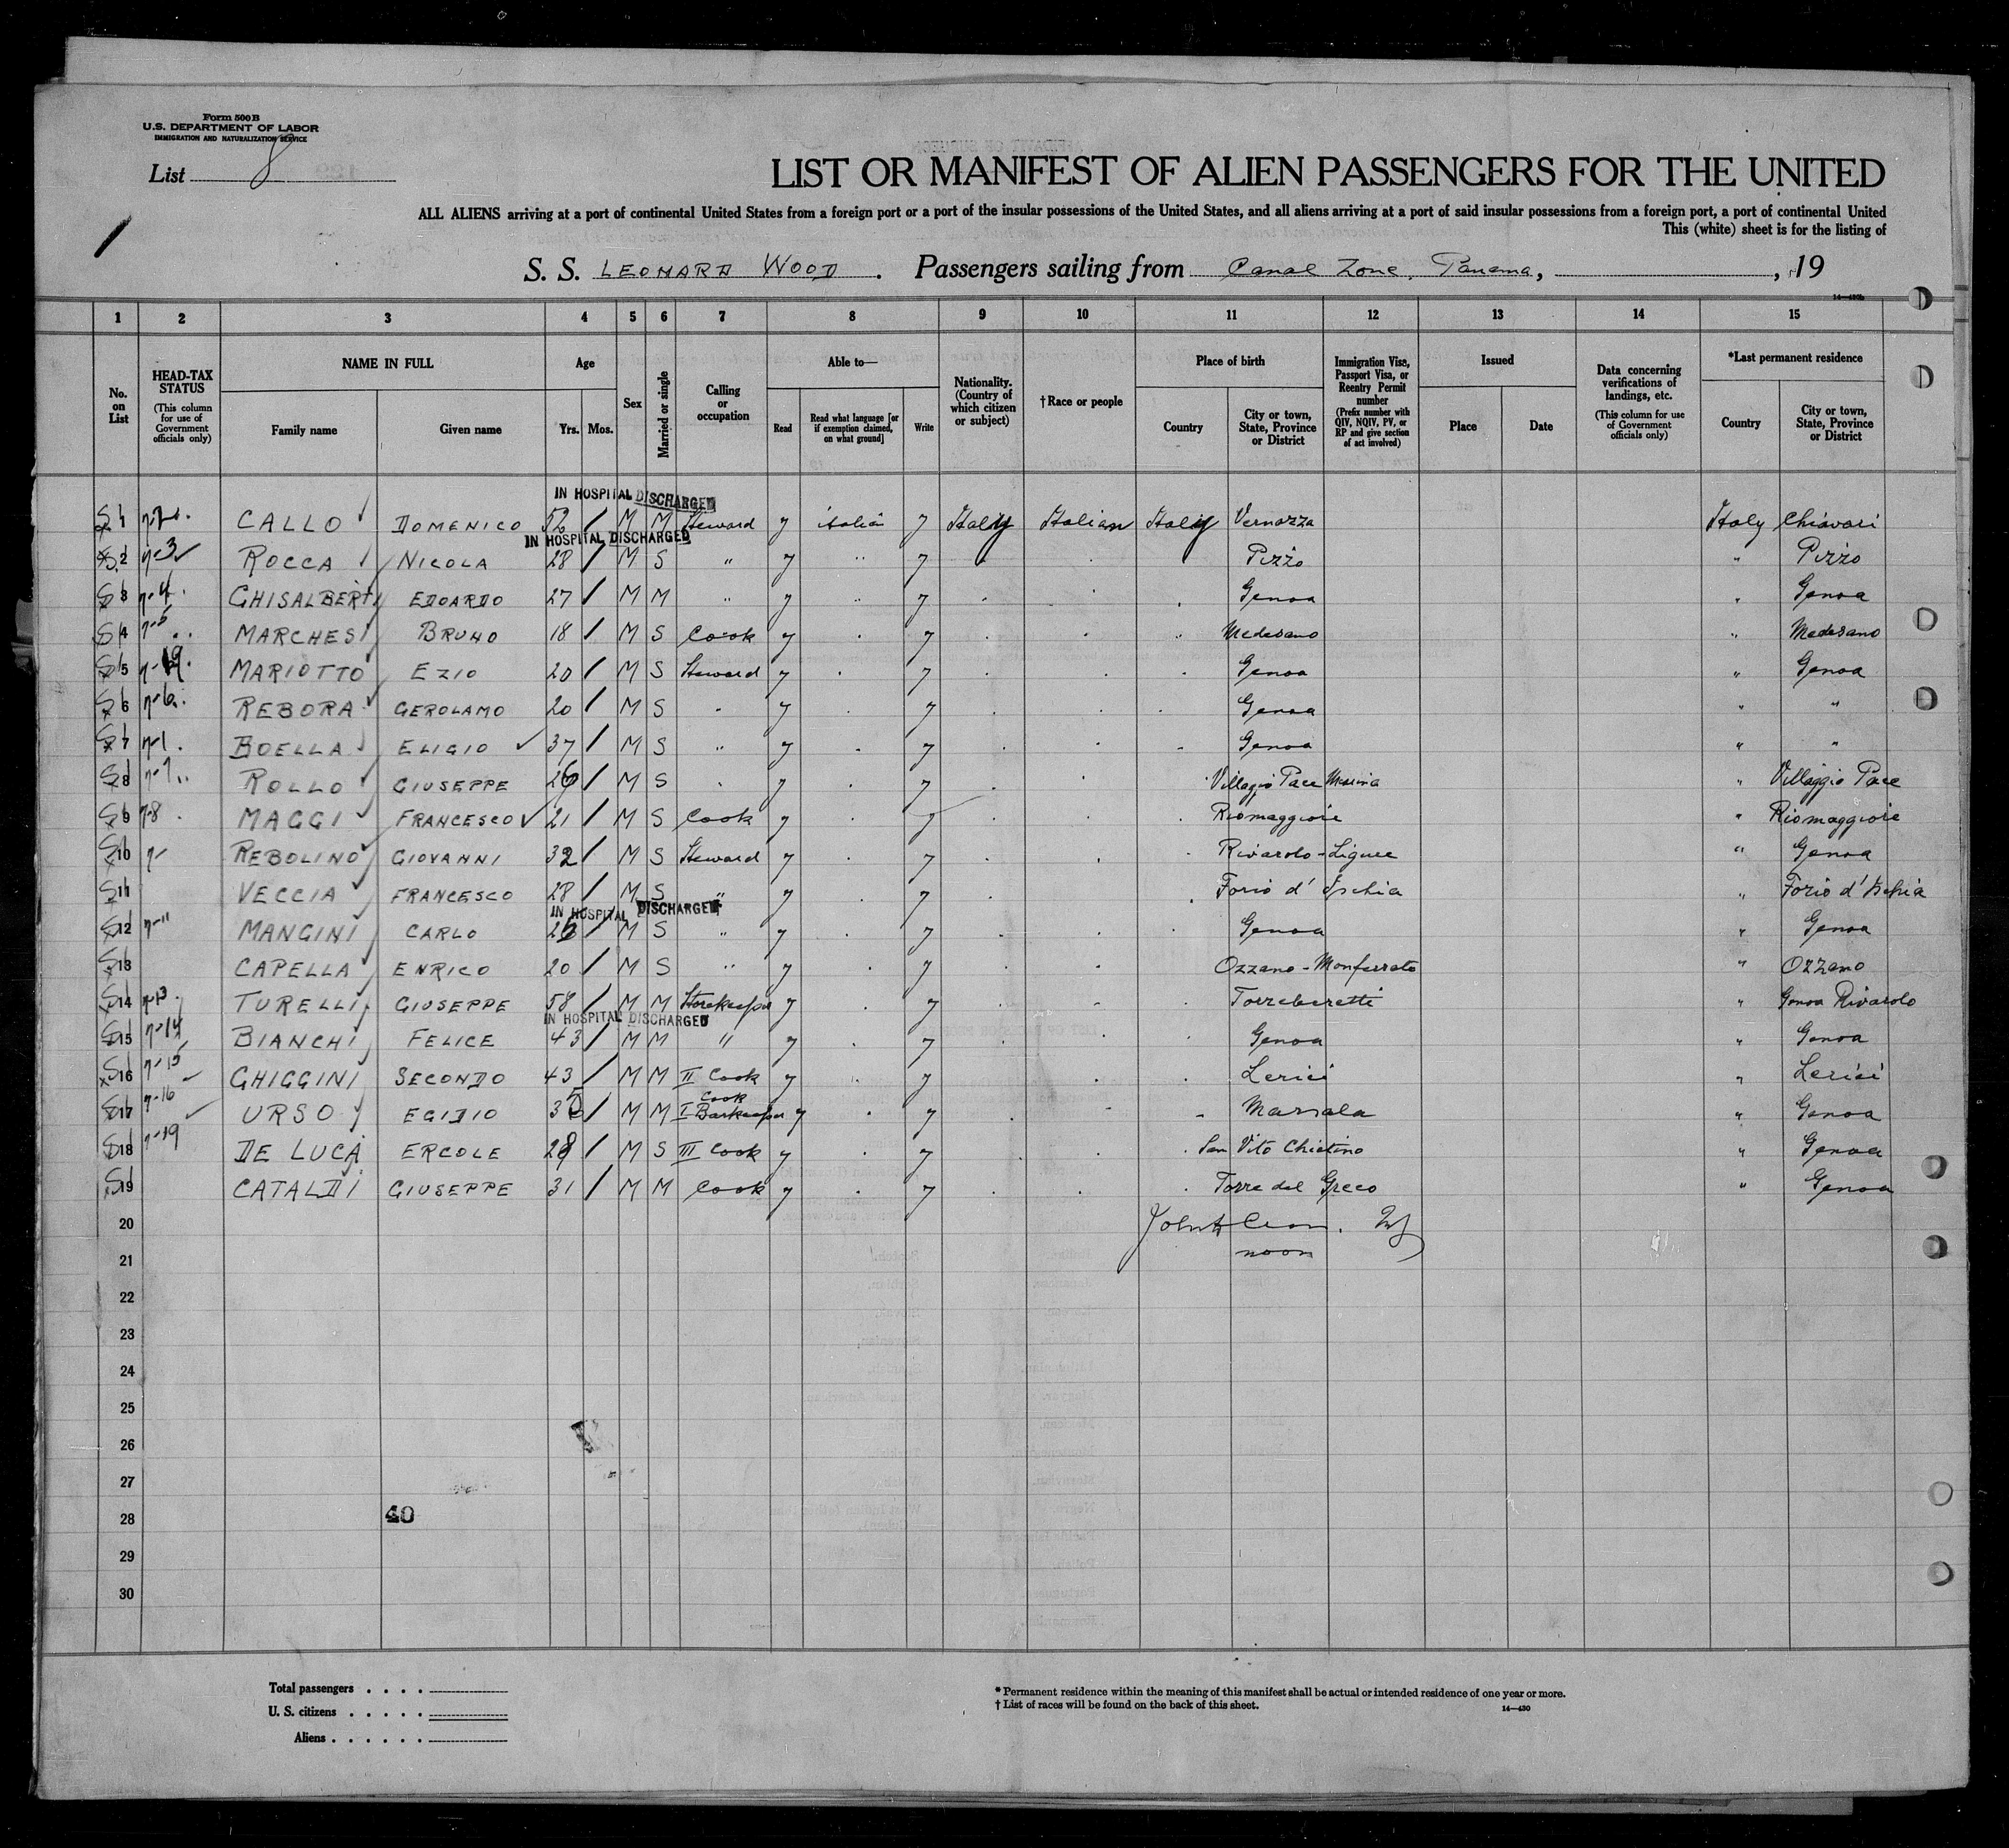 Form 500 B
U.S. DEPARTMENT OF LABOR
IMMIGRATION AND NATURALIZATION SERVICE
List 8
LIST OR MANIFEST OF ALIEN PASSENGERS FOR THE UNITED
ALL ALIENS arriving at a port of continental United States from a foreign port or a port of the insular possessions of the United States, and all aliens arriving at a port of said insular possessions from a foreign port, a port of continental United
This (white) sheet is for the listing of
S. S. LEONARD WOOD. Passengers sailing from Canal Zone, Panama, , 19
14—430b
1 2 3 4 5 6 7 8 9 10 11 12 13 14 15
No. on List
HEAD-TAX STATUS (This column for use of Government officials only)
NAME IN FULL Family name Given name
Age Yrs. Mos.
Sex
Married or single
Calling or occupation
Able to— Read Read what language [or if exemption claimed, on what ground] Write
Nationality. (Country of which citizen or subject)
†Race or people
Place of birth Country City or town, State, Province or District
Immigration Visa, Passport Visa, or Reentry Permit number (Prefix number with QIV, NQIV, PV, or RP and give section of act involved)
Issued Place Date
Data concerning verifications of landings, etc. (This column for use of Government officials only)
*Last permanent residence Country City or town, State, Province or District
IN HOSPITAL DISCHARGED
S 1 CALLO DOMENICO 52 M M Steward y italia y Italy Italian Italy Vernazza Italy Chiavari
IN HOSPITAL DISCHARGED
S 2 7-3 ROCCA NICOLA 28 M S " y " y Pizzo " Pizzo
S 3 7-4 GHISALBERTI EDOARDO 27 M M " y " y Genoa " Genoa
S 4 7-5 MARCHESI BRUNO 18 M S Cook y y " Medesano " Medesano
S 5 MARIOTTO EZIO 20 M S Steward y y Genoa " Genoa
S 6 7-6 REBORA GEROLAMO 20 M S y y Genoa " "
S 7 7-1 BOELLA ELIGIO 37 M S " y y Genoa " "
S 8 7-7 ROLLO GIUSEPPE 26 M S y y Villagio Pace Messina " Villaggio Pace
S 9 7-8 MAGGI FRANCESCO 21 M S Cook y y Riomaggiore " Riomaggiore
S 10 7- REBOLINO GIOVANNI 32 M S Steward y y Rivarolo-Ligure " Genoa
S 11 VECCIA FRANCESCO 28 M S " y y Forio d' Ischia " Forio d' Ischia
IN HOSPITAL DISCHARGED
S 12 7-11 MANGINI CARLO 26 M S " y y Genoa " Genoa
S 13 CAPELLA ENRICO 20 M S " y y Ozzano-Monferrato " Ozzano
S 14 7-13 TURELLI GIUSEPPE 58 M M Storekeeper y y Torreberetti " Genoa Rivarolo
IN HOSPITAL DISCHARGED
S 15 7-14 BIANCHI FELICE 43 M M " y y Genoa " Genoa
S 16 7-15 GHIGGINI SECONDO 43 M M II Cook y y Lerici " Lerici
S 17 7-16 URSO EGIDIO 35 M M I Cook Barkeeper y y Marsala " Genoa
S 18 7-19 DE LUCA ERCOLE 28 M S III Cook y y San Vito Chietino " Genoa
S 19 CATALDI GIUSEPPE 31 M M Cook y y Torre del Greco " Genoa
20
noon
21
22
23
24
25
26
27
28 40
29
30
Total passengers
U. S. citizens
Aliens
* Permanent residence within the meaning of this manifest shall be actual or intended residence of one year or more.
† List of races will be found on the back of this sheet.
14—430